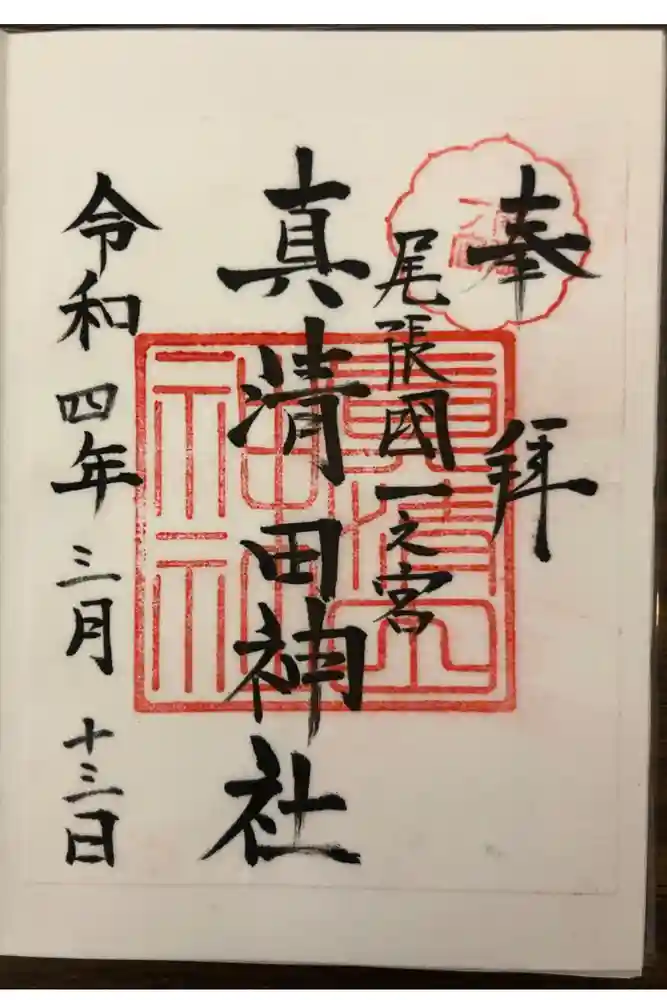 奉拝
尾張國一之宮
真清田神社
令和四年三月十三日